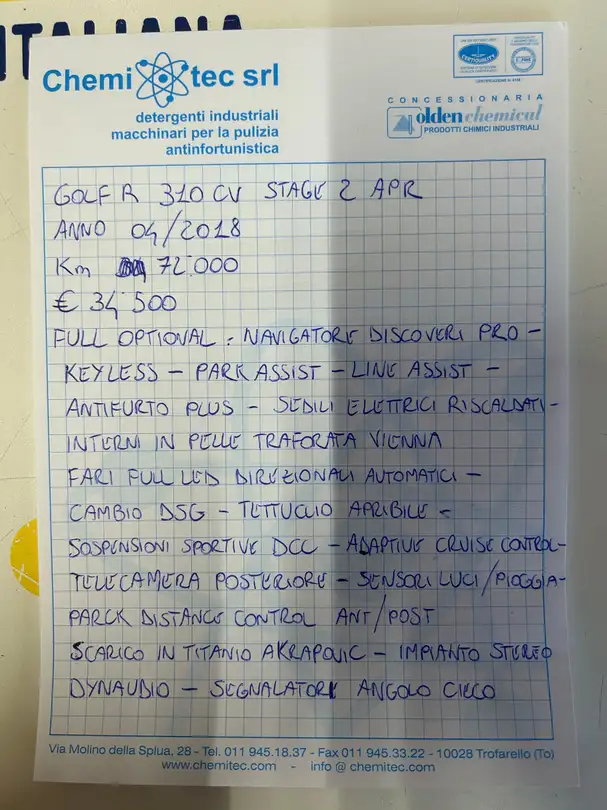 ITALIANA
Chemi tec srl
detergenti industriali
macchinari per la pulizia
antinfortunistica
CERTIQUALITY
CONCESSIONARIA
olden chemical
PRODOTTI CHIMICI INDUSTRIALI
GOLF R 310 CV STAGE 2 APR
ANNO 04/2018
Km 72.000
€ 34.500
FULL OPTIONAL - NAVIGATORE DISCOVERI PRO -
KEYLESS - PARK ASSIST - LINE ASSIST -
ANTIFURTO PLUS - SEDILI ELETTRICI RISCALDATI -
INTERNI IN PELLE TRAFORATA VIENNA
FARI FULL LED DIREZIONALI AUTOMATICI -
CAMBIO DSG - TETTUCCIO APRIBILE -
SOSPENSIONI SPORTIVE DCC - ADAPTIVE CRUISE CONTROL -
TELECAMERA POSTERIORE - SENSORI LUCI/PIOGGIA -
PARCK DISTANCE CONTROL ANT/POST
SCARICO IN TITANIO AKRAPOVIC - IMPIANTO STEREO
DYNAUDIO - SEGNALATORE ANGOLO CIECO
Via Molino della Splua, 28 - Tel. 011 945.18.37 - Fax 011 945.33.22 - 10028 Trofarello (To)
www.chemitec.com - info @ chemitec.com